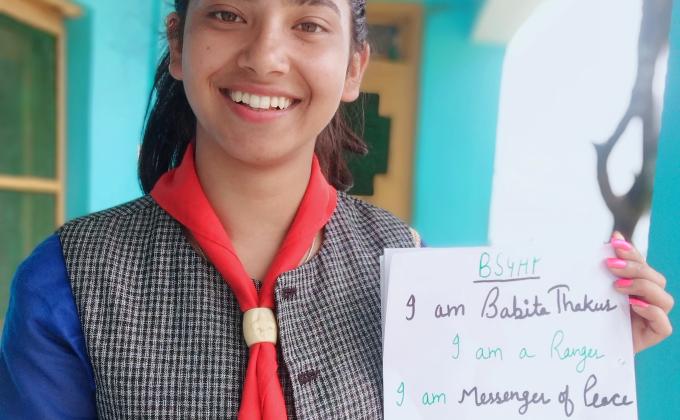 BSGHP
I am Babita Thakur
I am a Ranger
I am Messenger of Peace